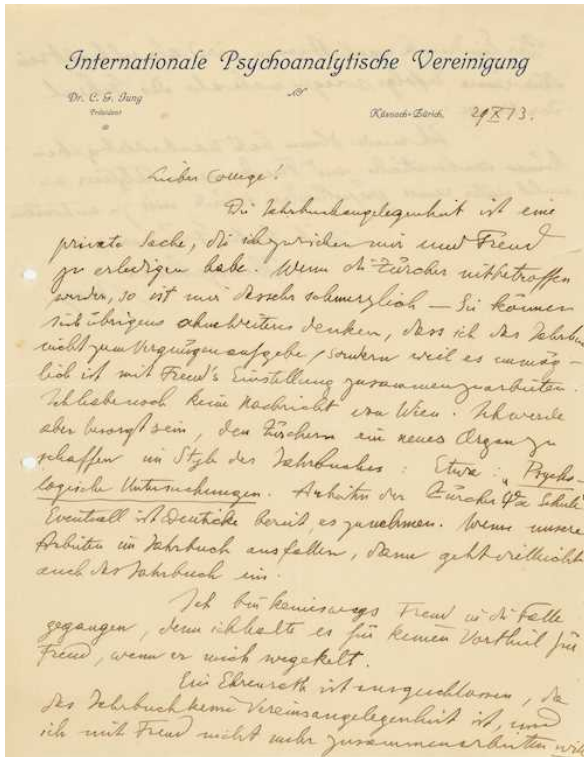 Internationale Psychoanalytische Vereinigung
Dr. C. G. Jung
Präsident
Küsnach-Zürich,
29 X 13.
Lieber College!
Die Jahrbuchangelegenheit ist eine
private Sache, die ich zwischen mir und Freud
zu erledigen habe. Wenn die Zürcher mitbetroffen
werden, so ist mir das sehr schmerzlich — Sie können
sich übrigens ohne weiteres denken, dass ich das Jahrbuch
nicht zum Vergnügen aufgebe, sondern weil es unmög-
lich ist mit Freud's Einstellung zusammenzuarbeiten.
Ich habe noch keine Nachricht von Wien. Ich werde
aber besorgt sein, den Zürchern ein neues Organ zu
schaffen im Styl des Jahrbuches: Etwa: „Psycho-
logische Untersuchungen. der Zürcher Schule
Eventuell ist Deuticke bereit es zu nehmen. Wenn unsere
Arbeiten im Jahrbuch ausfallen, dann geht vielleicht
auch das Jahrbuch ein.
Ich bin keineswegs Freud in die Falle
gegangen, denn ich halte es für keinen Vortheil für
Freud, wenn er mich wegekelt.
Ein Ehrenrath ist ausgeschlossen, da
das Jahrbuch keine Vereinsangelegenheit ist, und
ich mit Freud nicht mehr zusammenarbeiten will